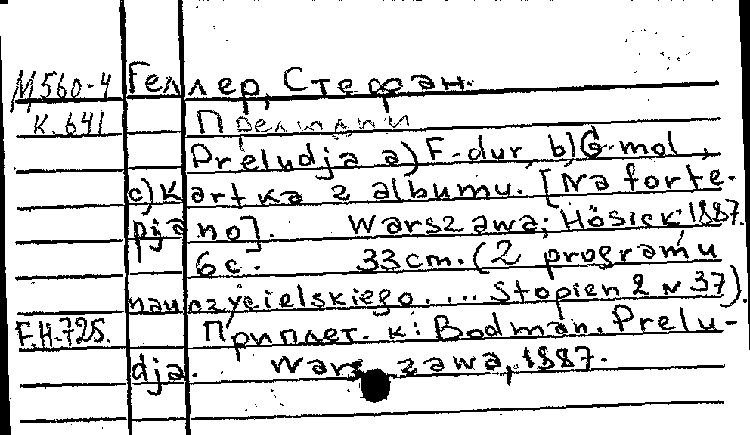 М560-4 Геллер, Стефан.
К. 641 Прелюдии
Préludja a) F-dur, b) G-mol,
c) Kartka z albumu. [Na forte-
pjano]. Warszawa; Hösick: 1887.
6 с. 33 cm. (2 programu
nauczycielskiego.... Stopień 2 № 37).
F.H-725. Приплет. к: Bodman. Prelu-
dja. Warszawa, 1887.